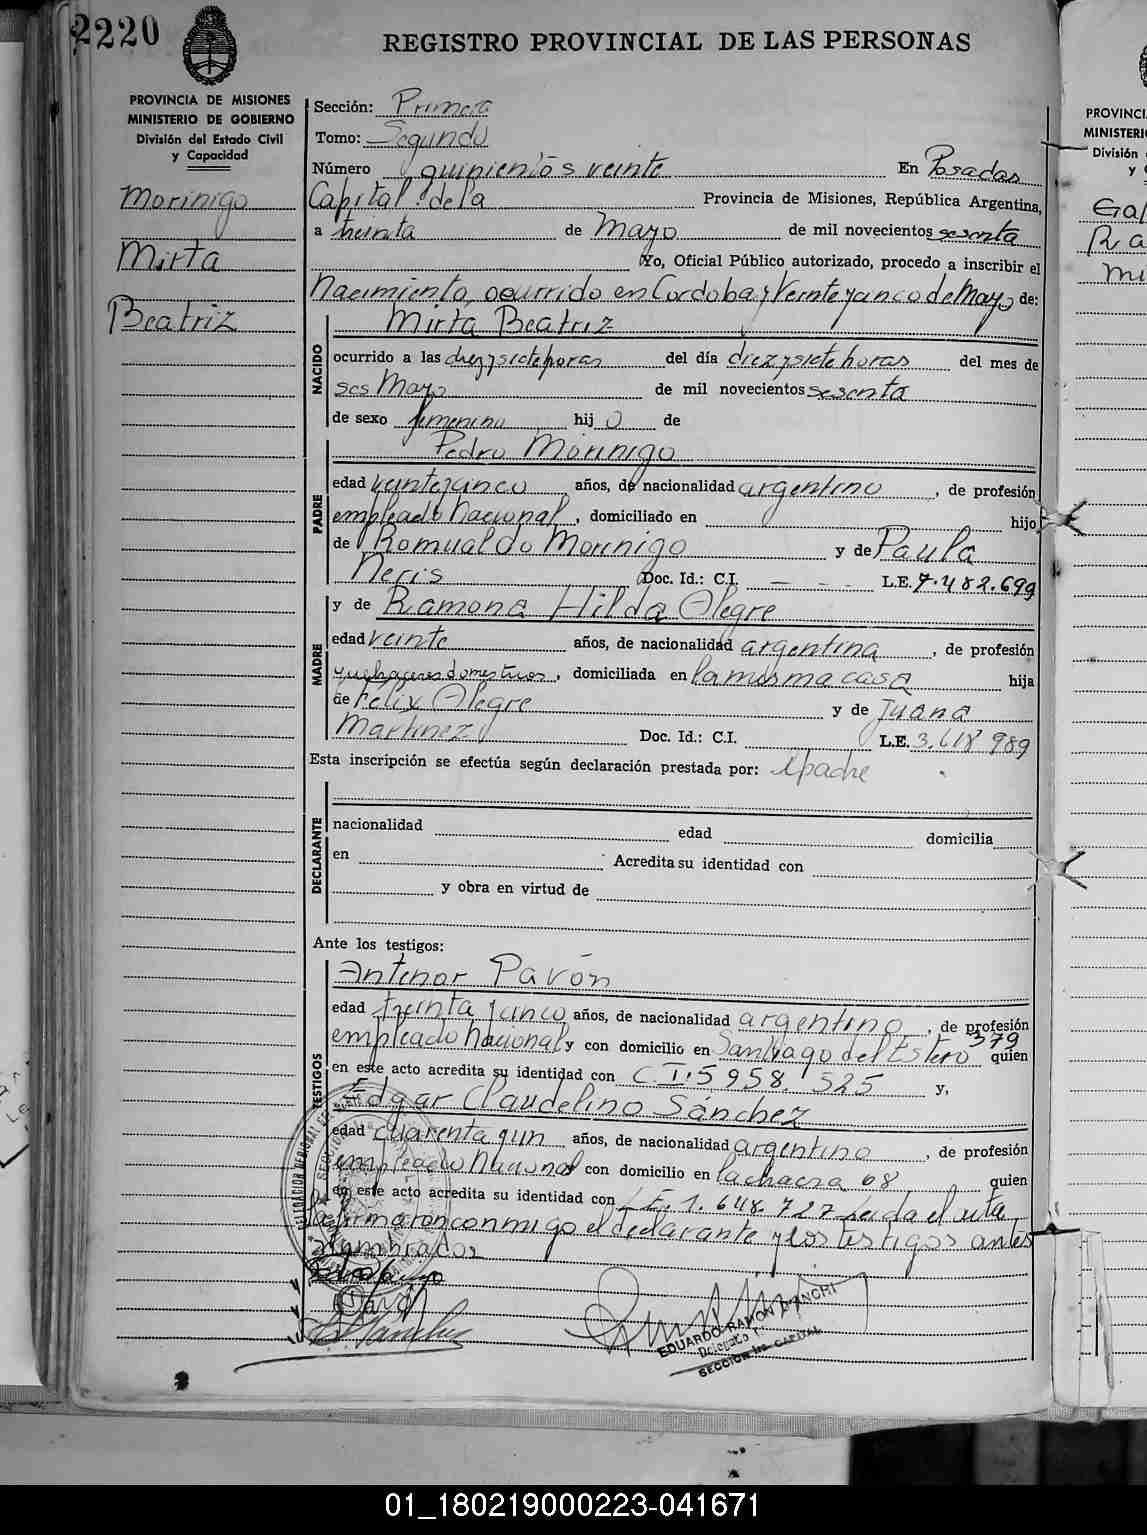 2220
REGISTRO PROVINCIAL DE LAS PERSONAS
PROVINCIA DE MISIONES
MINISTERIO DE GOBIERNO
División del Estado Civil
y Capacidad
Morinigo
Mirta
Beatriz
Sección: Primera
Tomo: Segundo
Número quinientos veinte En Posadas
Capital de la Provincia de Misiones, República Argentina,
a treinta de Mayo de mil novecientos sesenta
Yo, Oficial Público autorizado, procedo a inscribir el
Nacimiento, ocurrido en Cordoba y Veinteycinco de Mayo de:
NACIDO
Mirta Beatriz
ocurrido a las diezysiete horas del día diezysiete horas del mes de
Mayo de mil novecientos sesenta
de sexo femenino hij o de
PADRE
Pedro Morinigo
edad veinteycinco años, de nacionalidad argentino, de profesión
empleado Nacional, domiciliado en hijo
de Romualdo Morinigo y de Paula
Neris Doc. Id.: C.I. — - - L.E. 7.482.699
MADRE
y de Ramona Hilda Alegre
edad veinte años, de nacionalidad argentina, de profesión
quehaceres domesticos, domiciliada en la misma casa hija
de Felix Alegre y de Juana
Martinez Doc. Id.: C.I. L.E. 3. 989
Esta inscripción se efectúa según declaración prestada por: el padre
DECLARANTE
nacionalidad edad domicilia
en Acredita su identidad con
y obra en virtud de
Ante los testigos:
TESTIGOS
Antenor Pavón
edad treinta y cinco años, de nacionalidad argentino, de profesión
empleado Nacional y con domicilio en Santiago del Estero 379 quien
en este acto acredita su identidad con C.I. 5958.525 y,
Edgar Claudelino Sánchez
edad cuarenta y un años, de nacionalidad argentino, de profesión
empleado Nacional con domicilio en la chacra 68 quien
en este acto acredita su identidad con L.E. 1.648.727 Leida el acta
la firmaron conmigo el declarante y los testigos antes
nombrados
EDUARDO RAMON BIANCHI
Delegado
SECCION 1ra CAPITAL
PROVINCI
MINISTERI
División
y
Gal
Ra
Mi
01_180219000223-041671